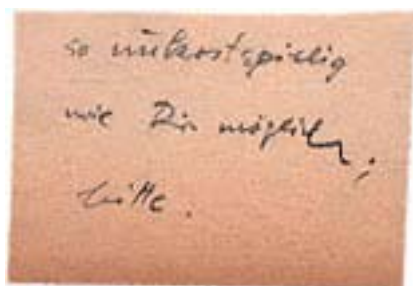 so unkostspielig
wie Dir möglich,
bitte.